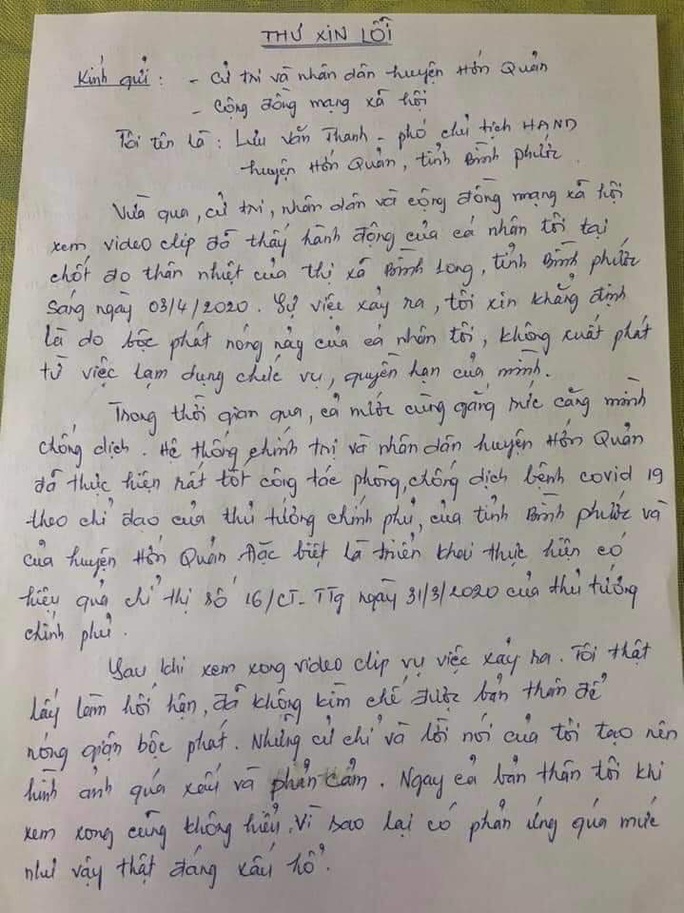 THƯ XIN LỖI
Kính gửi : - Cử tri và nhân dân huyện Hớn Quản
- Cộng đồng mạng xã hội
Tôi tên là : Lưu Văn Thanh - phó chủ tịch HĐND
huyện Hớn Quản, tỉnh Bình phước.
Vừa qua, cử tri, nhân dân và cộng đồng mạng xã hội
xem video clip đã thấy hành động của cá nhân tôi tại
chốt đo thân nhiệt của thị xã Bình Long, tỉnh Bình phước
sáng ngày 03/4/2020. Sự việc xảy ra, tôi xin khẳng định
là do bộc phát nóng nảy của cá nhân tôi, không xuất phát
từ việc lạm dụng chức vụ, quyền hạn của mình.
Trong thời gian qua, cả nước cùng gắng sức căng mình
chống dịch. Hệ thống chính trị và nhân dân huyện Hớn Quản
đã thực hiện rất tốt công tác phòng, chống dịch bệnh covid 19
theo chỉ đạo của thủ tướng chính phủ, của tỉnh Bình phước và
của huyện Hớn Quản. Đặc biệt là triển khai thực hiện có
hiệu quả chỉ thị số 16/CT-TTg ngày 31/3/2020 của thủ tướng
chính phủ.
Sau khi xem xong video clip vụ việc xảy ra. Tôi thật
lấy làm hối hận, đã không kìm chế được bản thân để
nóng giận bộc phát. Những cử chỉ và lời nói của tôi tạo nên
hình ảnh quá xấu và phản cảm. Ngay cả bản thân tôi khi
xem xong cũng không hiểu, vì sao lại có phản ứng quá mức
như vậy thật đáng xấu hổ.